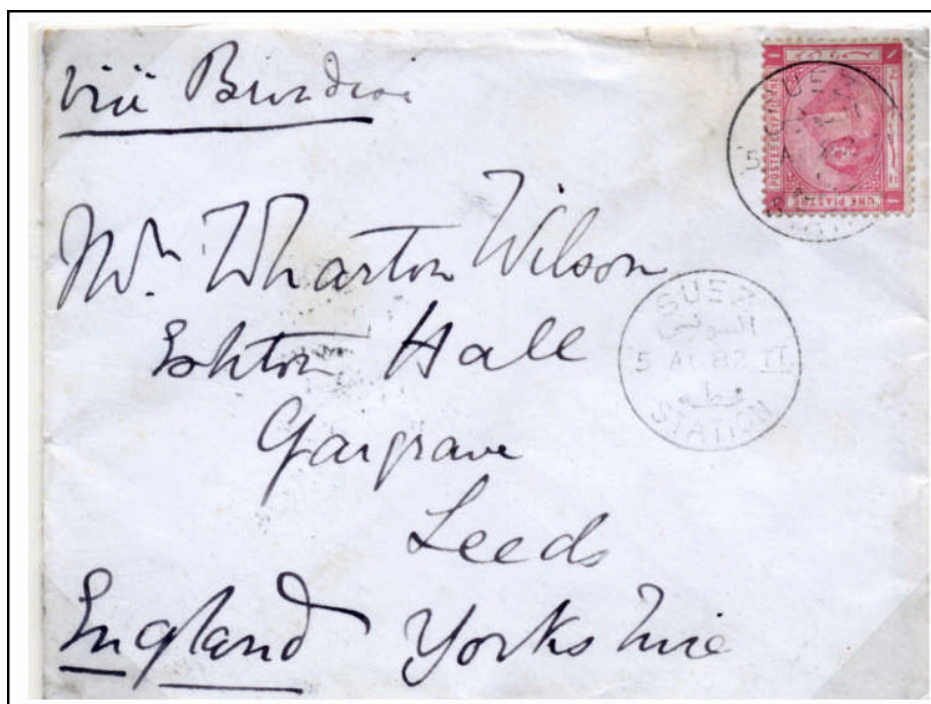 viâ Brindisi
Mrs. Wharton Wilson
Eshton Hall
Gargrave
Leeds
England Yorkshire
SUEZ
السويس
5 AU 82 TI
محطه
STATION
SUEZ
POSTES EGYPTIENNES
UNE PIASTRE